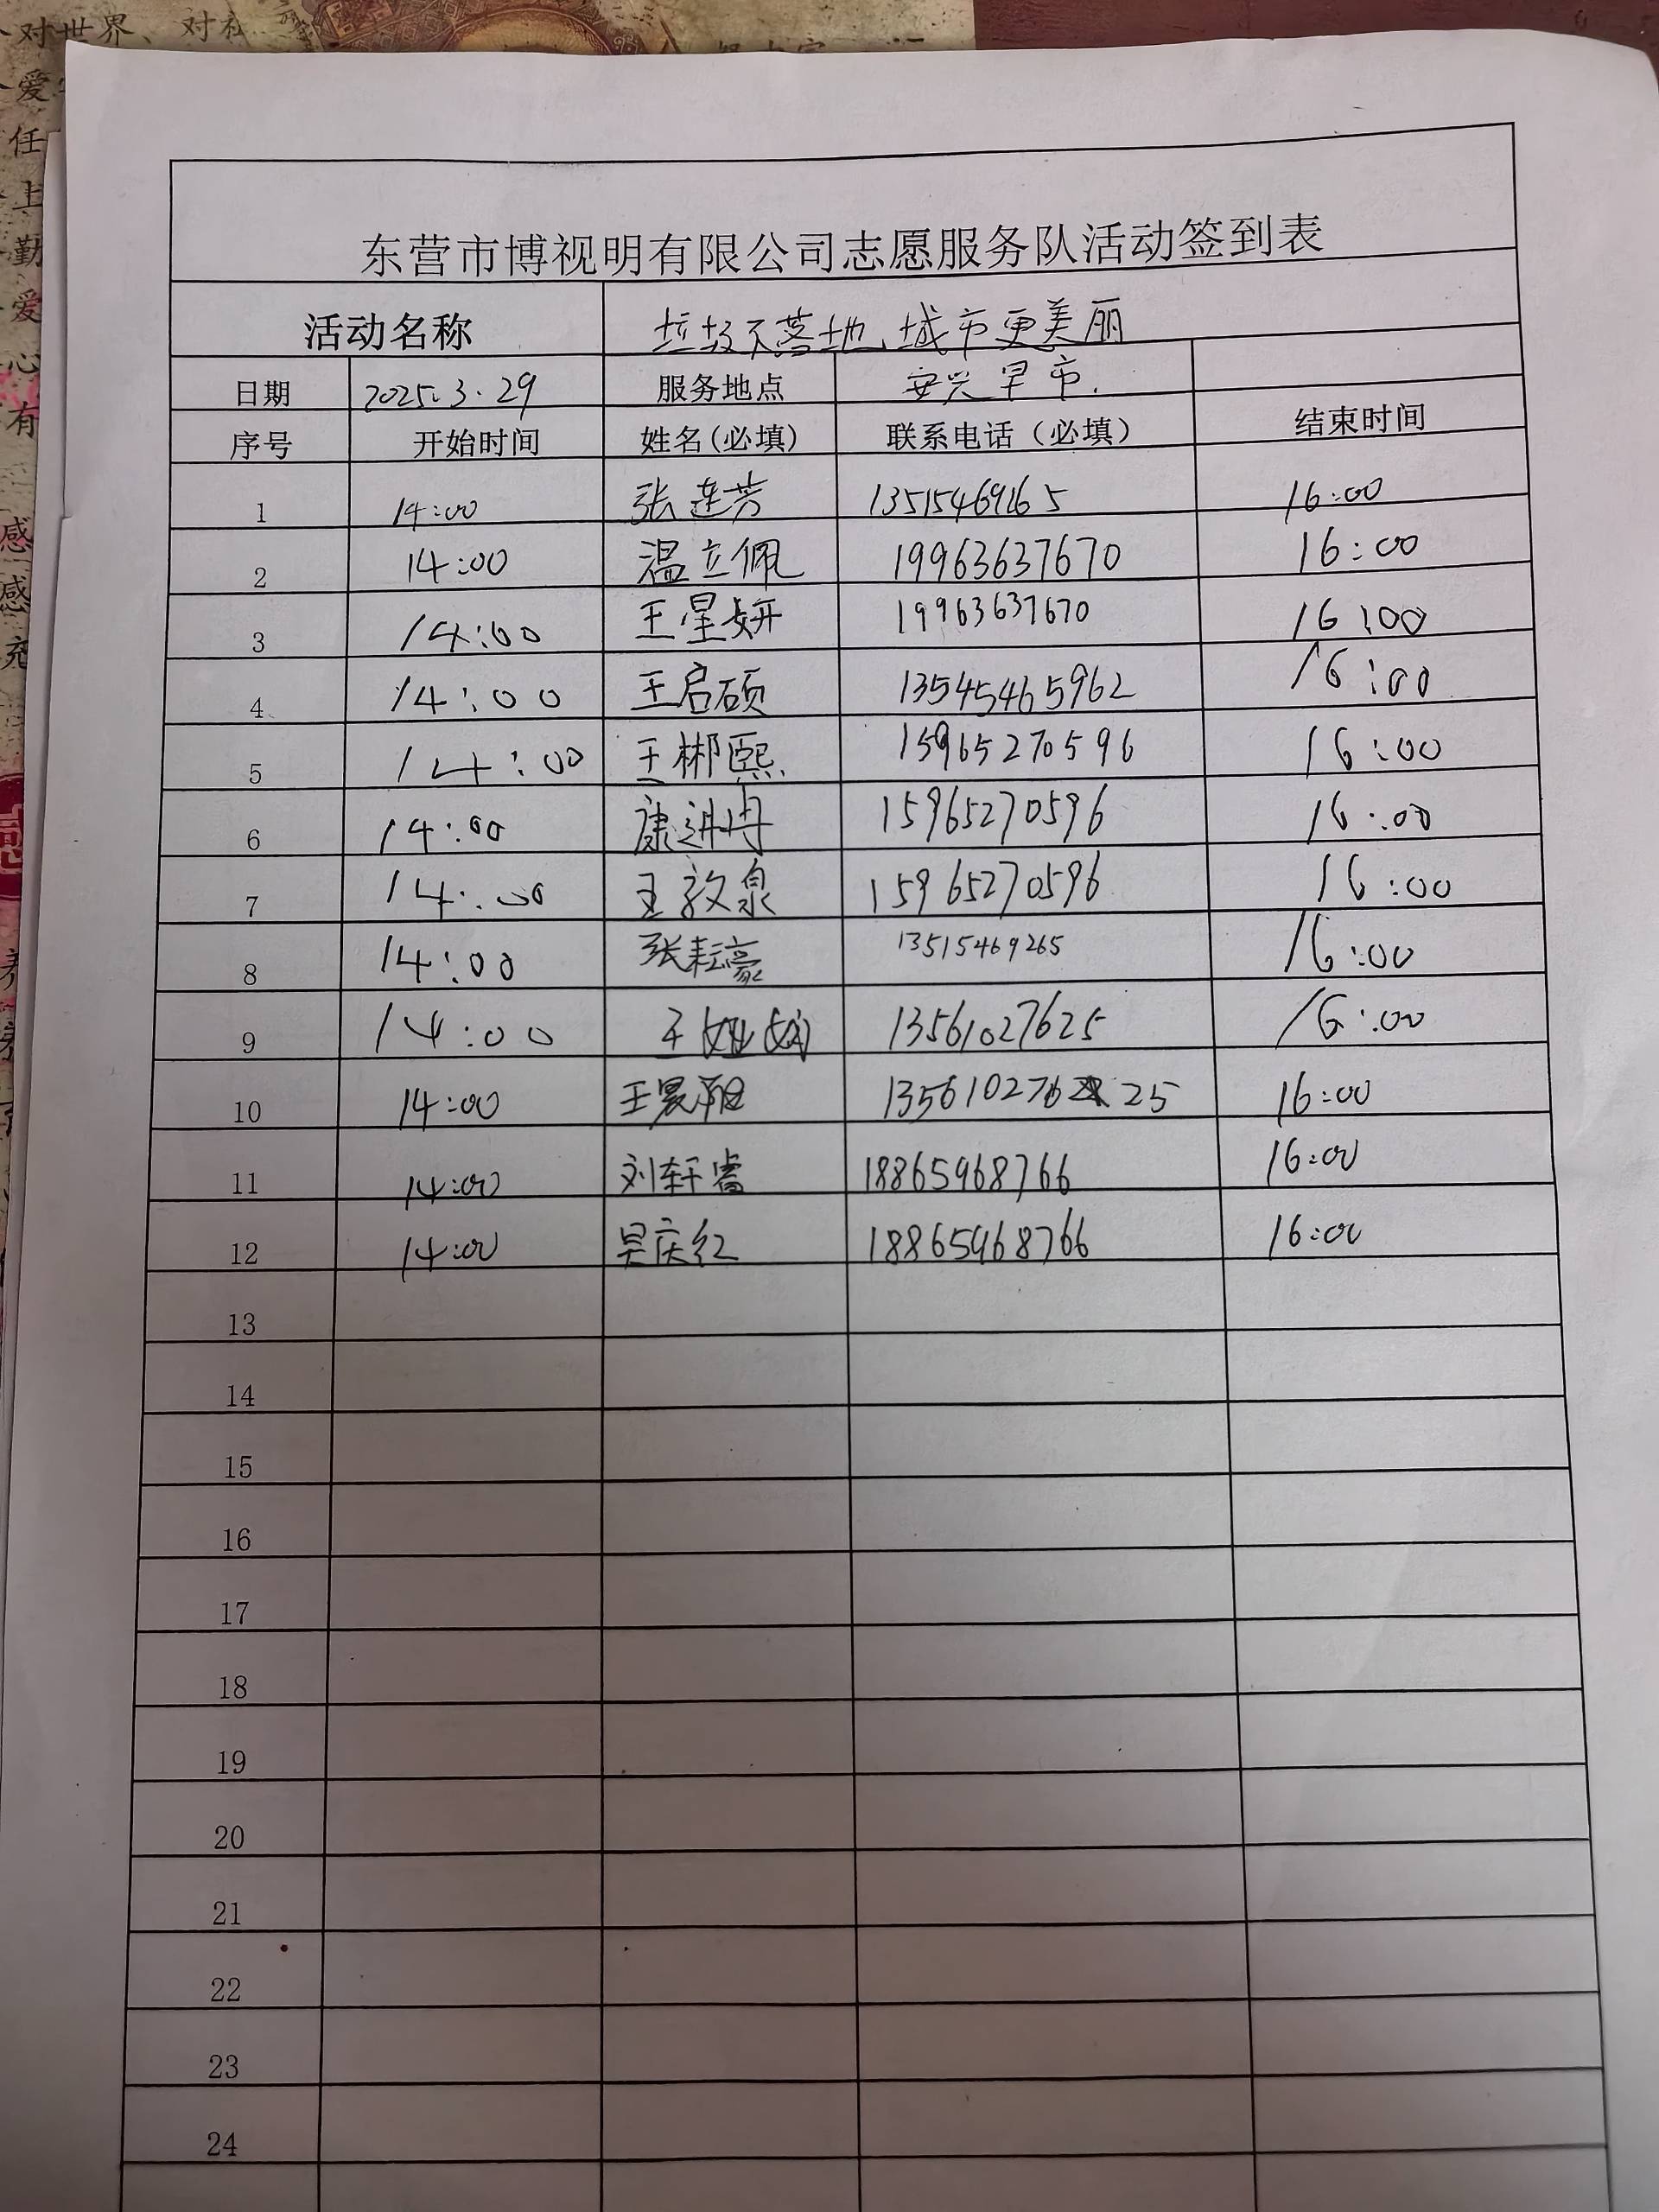 东营市博视明有限公司志愿服务队活动签到表
活动名称 垃圾不落地、城市更美丽
日期 2025.3.29 服务地点 安兴早市.
序号 开始时间 姓名(必填) 联系电话（必填） 结束时间
1 14:00 张莲芳 13515469265 16:00
2 14:00 温立佩 19963637670 16:00
3 14:00 王星妍 19963637670 16:00
4 14:00 王启硕 13545465962 16:00
5 14:00 王彬熙 15965270596 16:00
6 14:00 康进冉 15965270596 16:00
7 14:00 王敦泉 15965270596 16:00
8 14:00 张耘豪 13515469265 16:00
9 14:00 王 13561027625 16:00
10 14:00 王 13561027625 16:00
11 14:00 刘轩睿 18865968766 16:00
12 14:00 吴庆红 18865968766 16:00
13
14
15
16
17
18
19
20
21
22
23
24